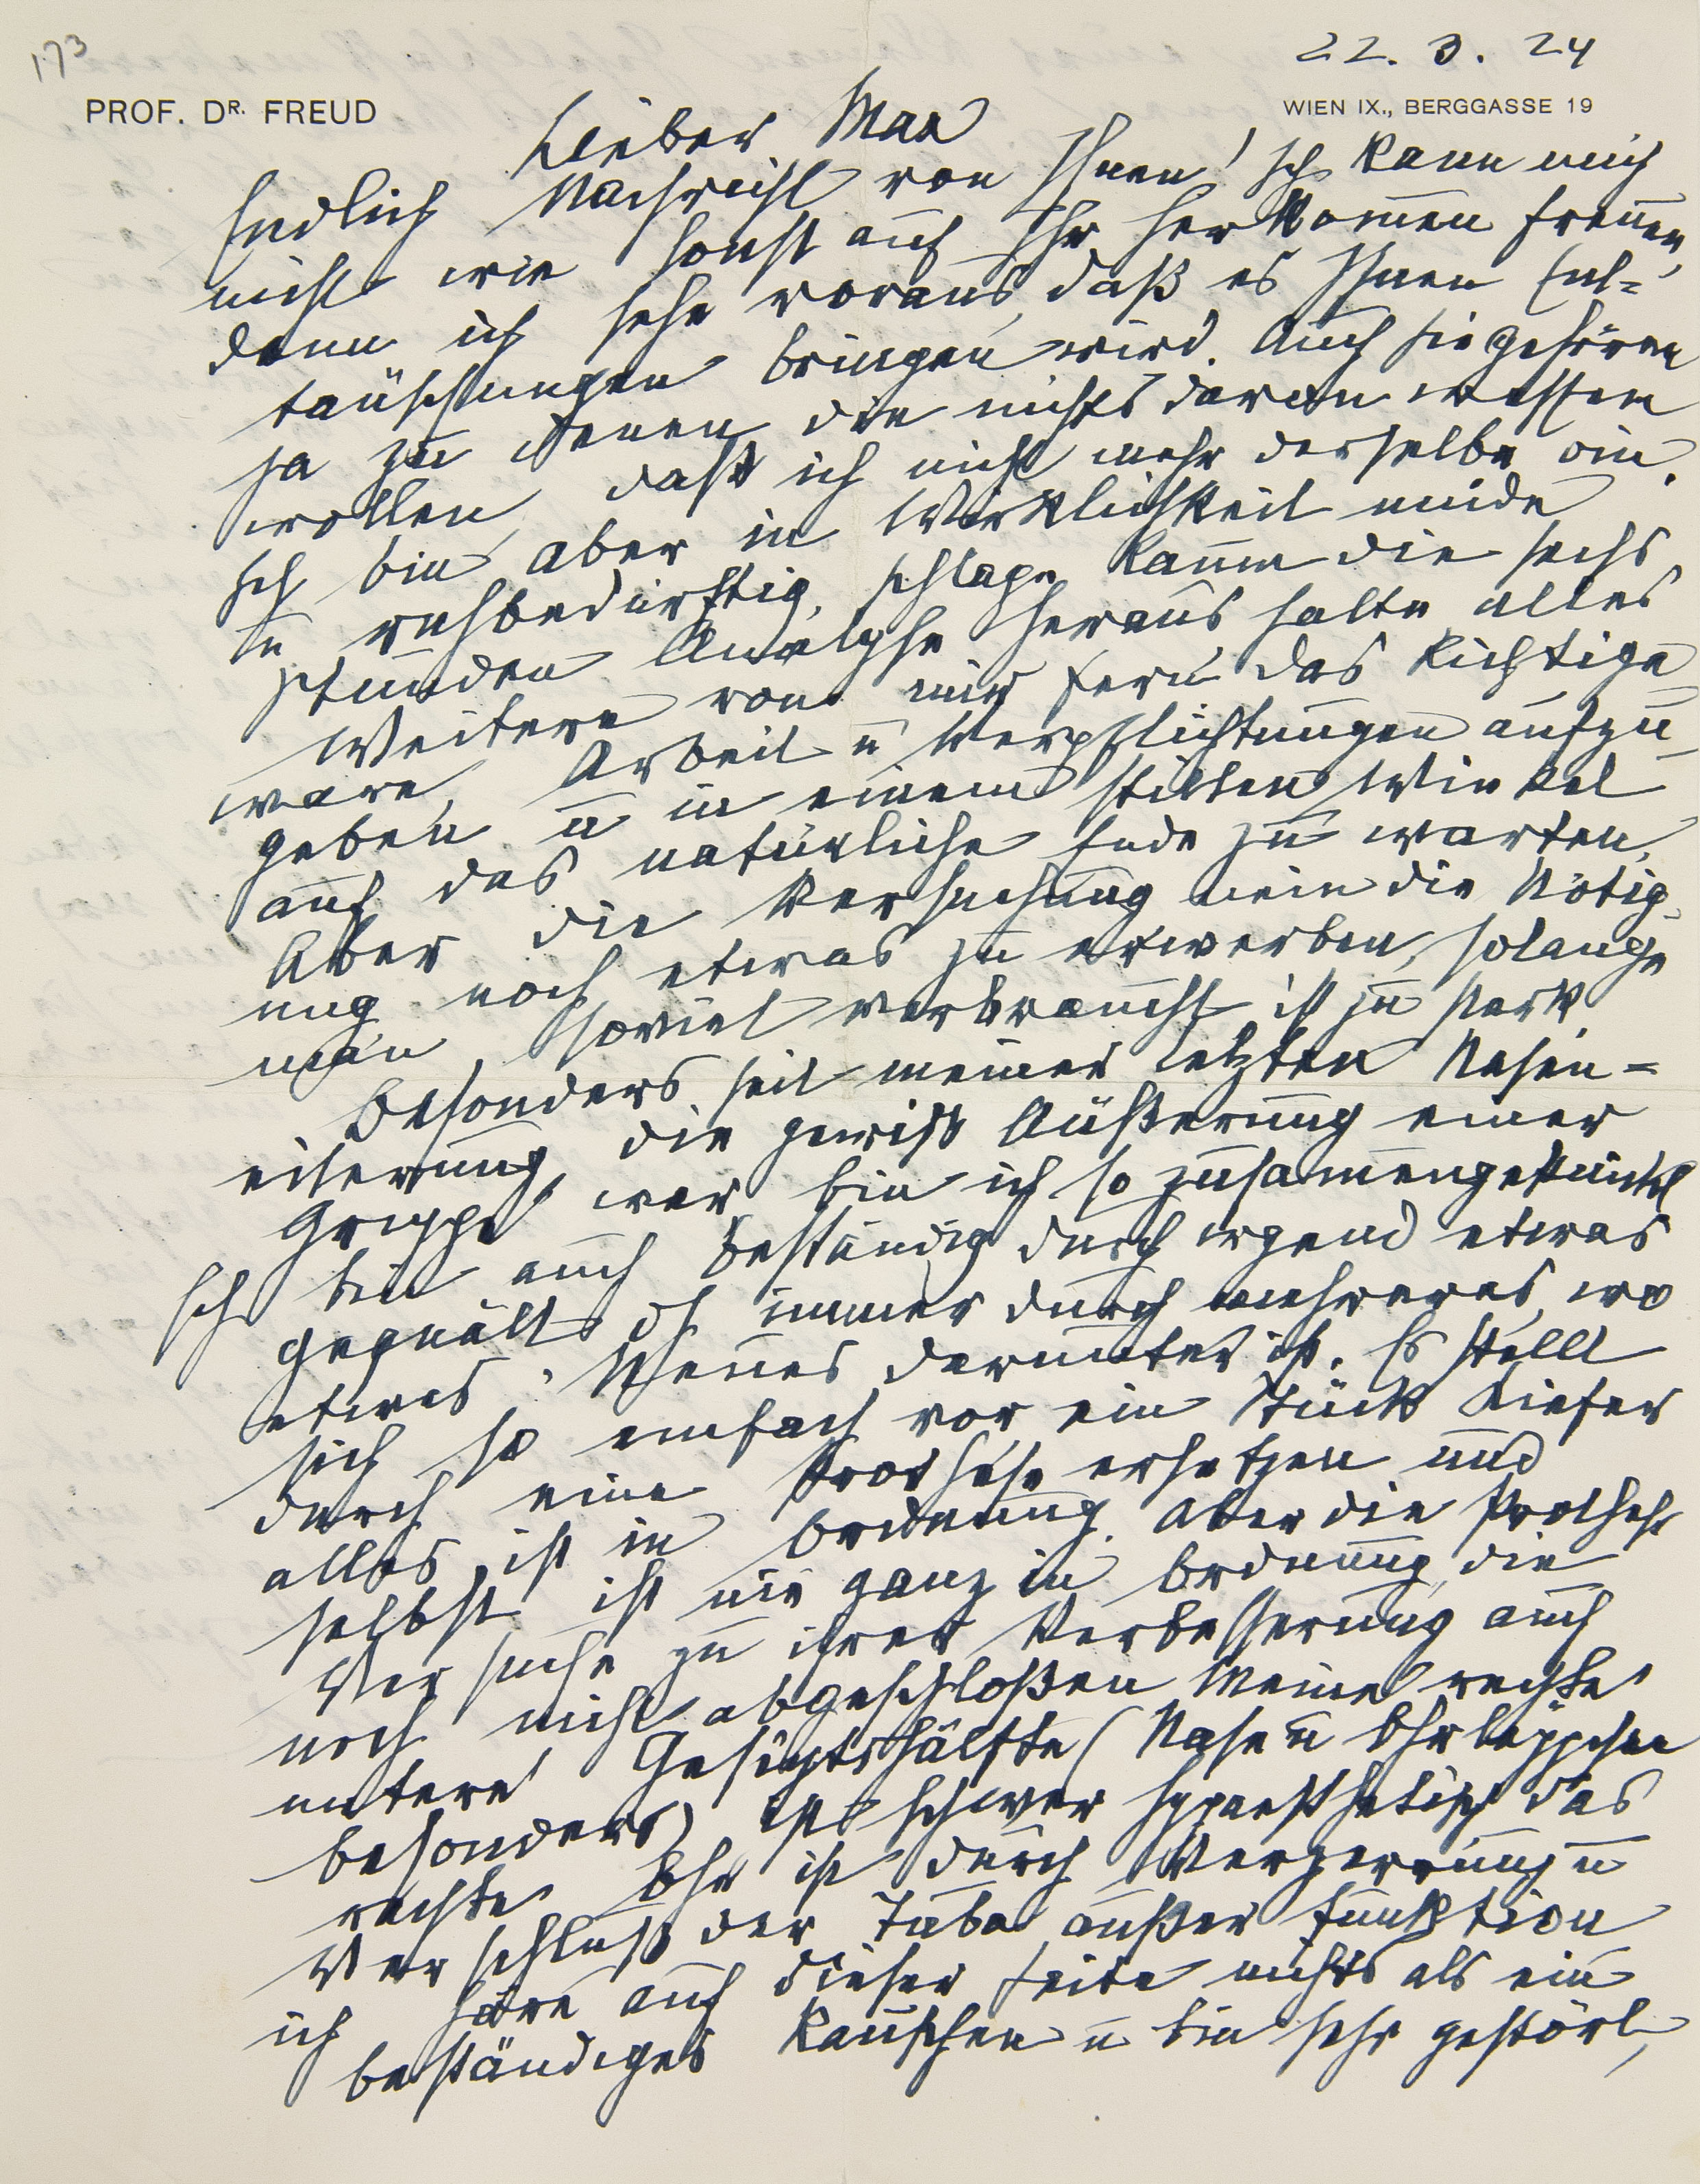 173
22. 3. 24
PROF. DR. FREUD
WIEN IX., BERGGASSE 19
Lieber Max
Endlich Nachricht von Ihnen! Ich kann mich
nicht wie sonst auf Ihr Herkommen freuen,
denn ich sehe voraus, daß es Ihnen Ent-
täuschungen bringen wird. Auch Sie gehören
ja zu denen die nichts davon wissen
wollen, daß ich nicht mehr derselbe bin.
Ich bin aber in Wirklichkeit müde
u ruhbedürftig, schlage kaum die sechs
Stunden Analyse heraus halte alles
Weitere von mir fern. Das Richtige
wäre, Arbeit u Verpflichtungen aufzu-
geben u in einem stillen Winkel
auf das natürliche Ende zu warten.
Aber die Versuchung nein die Nötig-
ung noch etwas zu erwerben, solange
man soviel verbraucht ist zu stark.
Besonders seit meiner letzten Nasen-
eiterung, die gewiß Äußerung einer
Grippe war, bin ich so zusammengeknickt
Ich bin auch beständig durch irgend etwas
gequält oft immer durch mehreres, wo
etwas Neues darunter ist. Es stellt
sich so einfach vor ein Stück Kiefer
durch eine Prothese ersetzen und
alles ist in Ordnung. Aber die Prothese
selbst ist nie ganz in Ordnung, die
Versuche zu ihrer Verbesserung auch
noch nicht abgeschloßen Meine rechte
untere Gesichtshälfte (Nase u Ohrläppchen
besonders) ist schwer hypaesthetisch das
rechte Ohr ist durch Verzerrung u
Verschluß der Tuba außer Funktion
ich höre auf dieser Seite nichts als ein
beständiges Rauschen u bin sehr gestört,